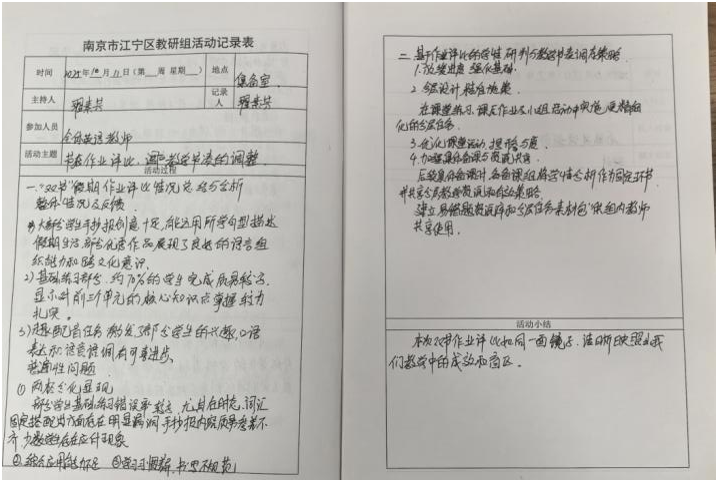 南京市江宁区教研组活动记录表
时间 2025年10月11日(第 周 星期 ) 地点 集备室
主持人 记录人
参加人员 全体英语教师
活动主题 作业评比、教学节奏的调整
活动过程
一、"双节"假期作业评比情况总结与分析
整体情况及反馈
大部分学生手抄报创意十足,能运用所学句型描述
假期生活,部分优秀作品展现了良好的语言组
织能力和跨文化意识。
2)基础练习部分,约70%的学生完成质量较高,
显示对前三个单元的核心知识点掌握较为
扎实。
3)趣配音任务激发了部分学生的兴趣,口语
表达和语音语调有可喜进步。
普遍性问题
① 两极分化显现
部分学生基础练习错误率较高,尤其在时态、词汇
固定搭配方面存在明显漏洞,手抄报内容质量参差不
齐,少数学生存在应付现象
② 综合应用能力不足 ③ 学习习惯 书写不规范
二、基于作业评比的学情研判与教学节奏调整策略
1. 放缓进度,强化基础
2. 分层设计,精准施策
在课堂练习、课后作业及小组活动中实施更精细
化的分层任务。
3. 优化课堂活动,提升参与度
4. 加强集体备课与资源共享
后续集体备课时,各备课组将学情分析作为固定环节,
并共享分层教学资源和有效策略。
建立易错题资源库和分层任务素材包,供组内教师
共享使用。
活动小结
本次双节作业评比如同一面镜子,清晰映照出我
们教学中的成效和盲区。